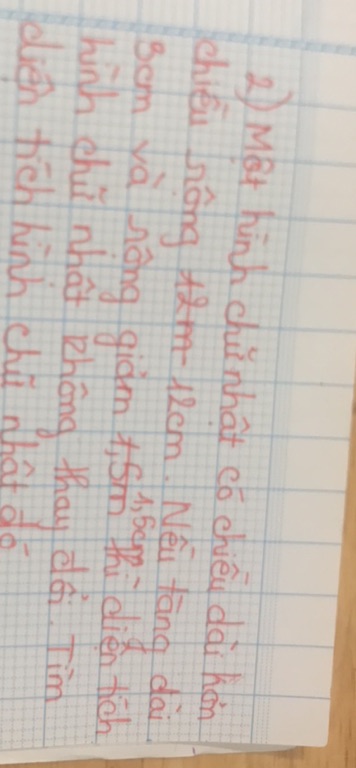 2) Một hình chữ nhật có chiều dài hơn
chiều rộng 12m 12cm. Nếu tăng dài
8cm và rộng giảm 1,5m 1,5cm thì diện tích
hình chữ nhật không thay đổi. Tìm
diện tích hình chữ nhật đó